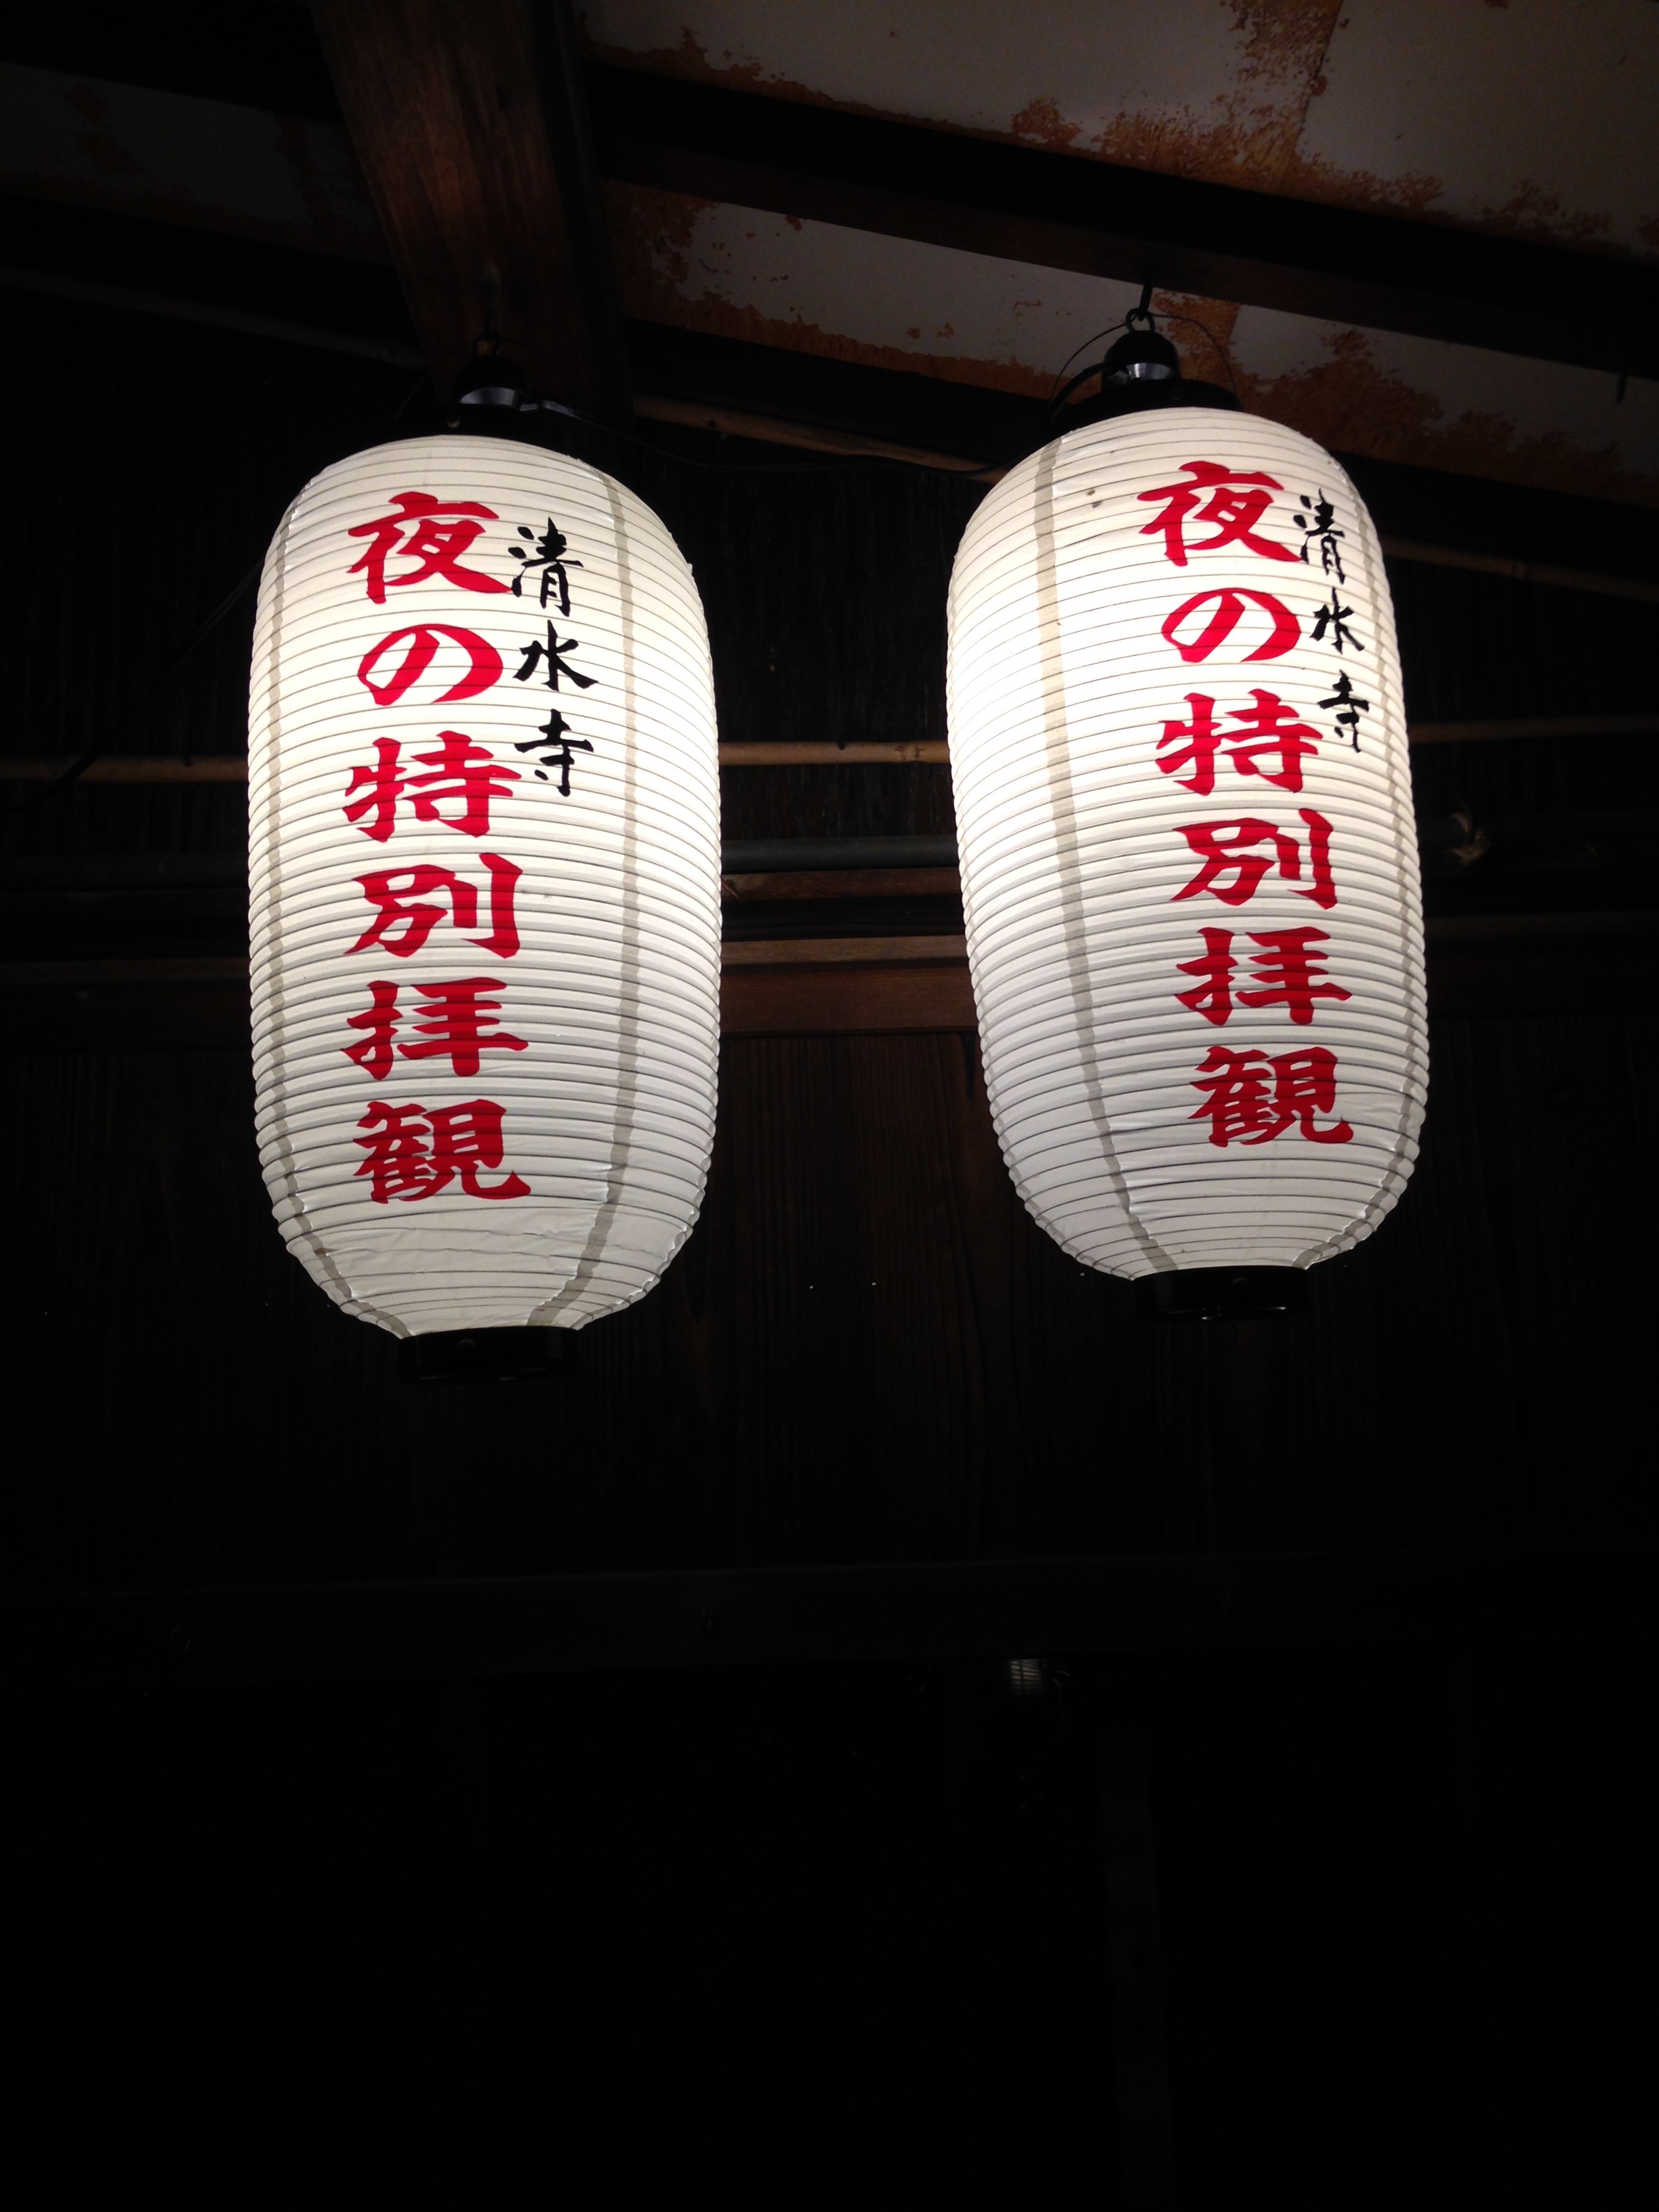 清水寺
夜の特別拝観
清水寺
夜の特別拝観